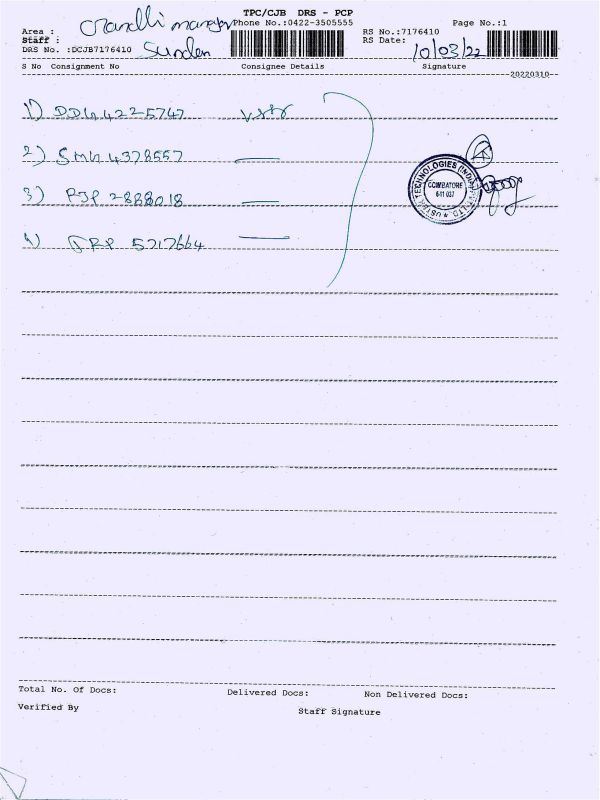 TPC/CJB DRS - PCP
Phone No.:0422-3505555 Page No.:1
Area : RS No.:7176410
Staff : RS Date: 10/03/22
DRS No. :DCJB7176410 Sunder
S No Consignment No Consignee Details Signature
20220310--
1) 4225747
2) SMU 4378557
3) PJP 2888018
4) 5717664
TECHNOLOGIES (INDIA) PVT LTD
COIMBATORE
641 037
Total No. Of Docs: Delivered Docs: Non Delivered Docs:
Verified By Staff Signature